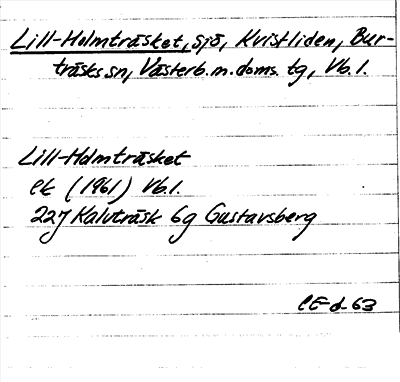 Lill-Holmträsket, sjö, Kvistliden, Bur-
träsks sn, Västerb. m. doms. tg, Vb. l.
Lill-Holmträsket
ek (1961) Vb. l.
22J Kalvträsk 6g Gustavsberg
CE-d-63